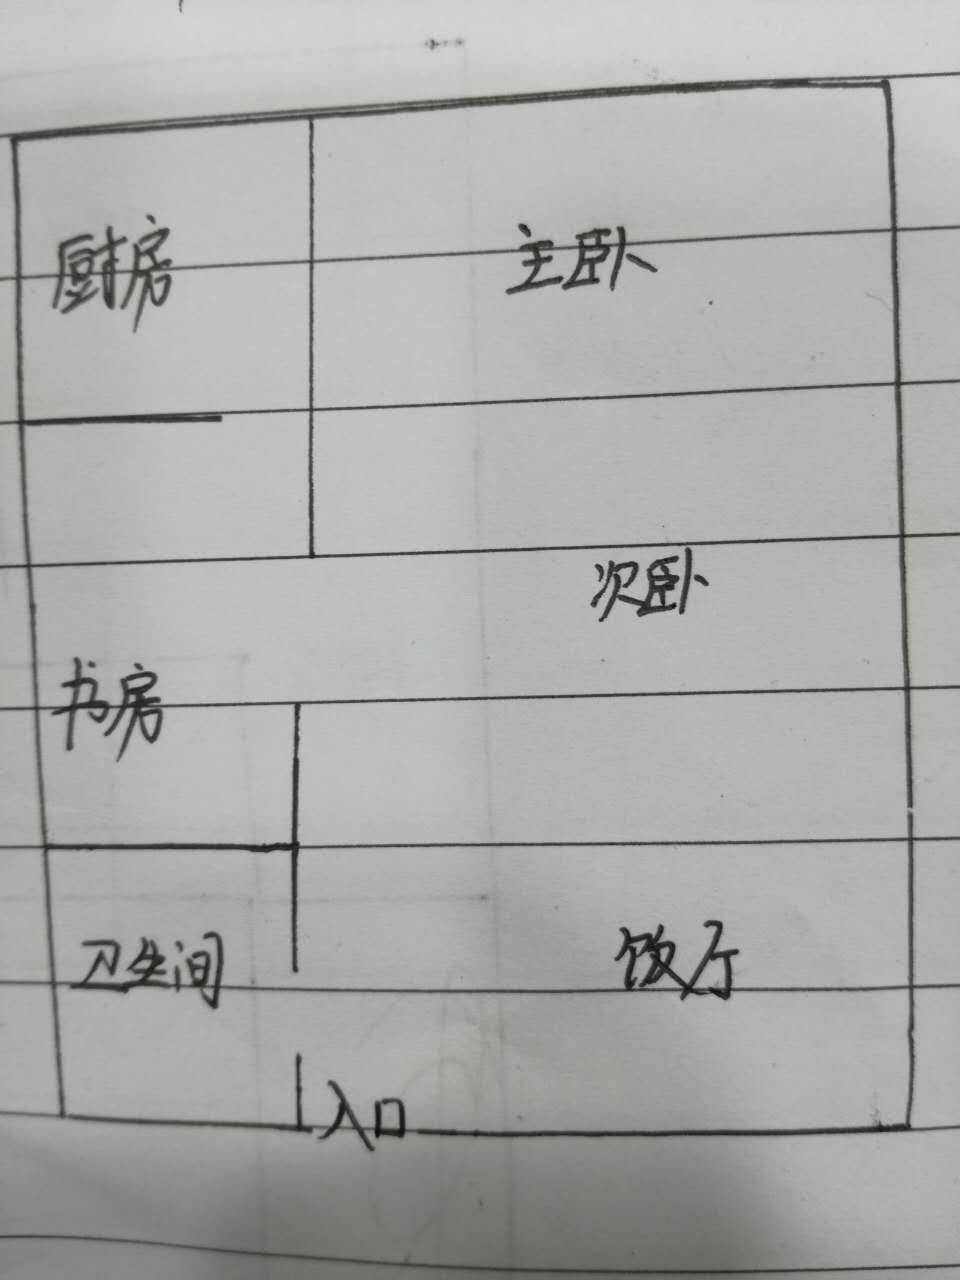 厨房
主卧
次卧
书房
卫生间
饭厅
入口